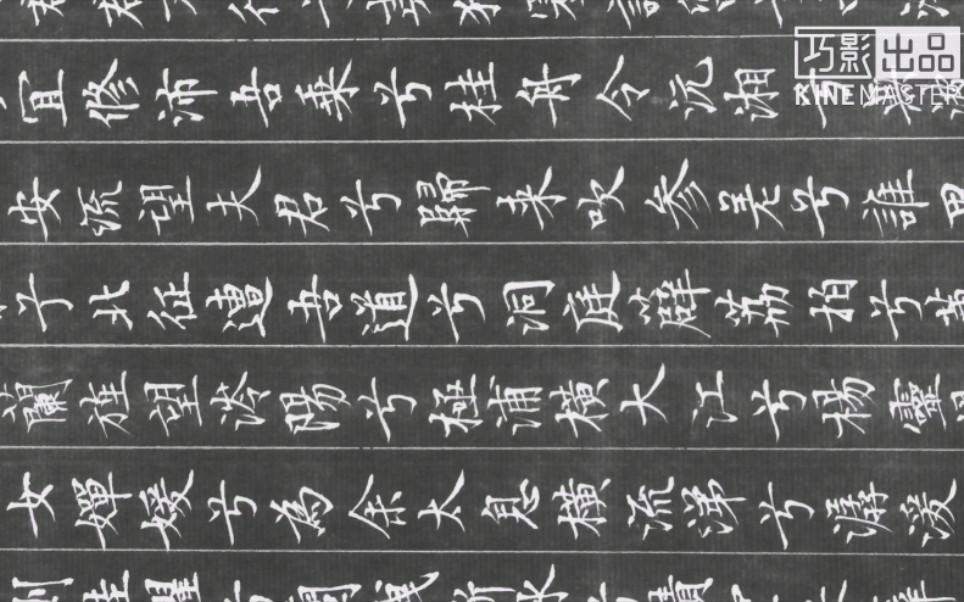 巧影出品
KINEMASTER
宜修沛吾乘兮桂舟令沅湘兮
安流望夫君兮歸來吹參差兮誰思
兮北征邅吾道兮洞庭薜荔柏兮蕙
蘭旌望涔陽兮極浦橫大江兮揚靈
女嬋媛兮為余太息橫流涕兮潺湲